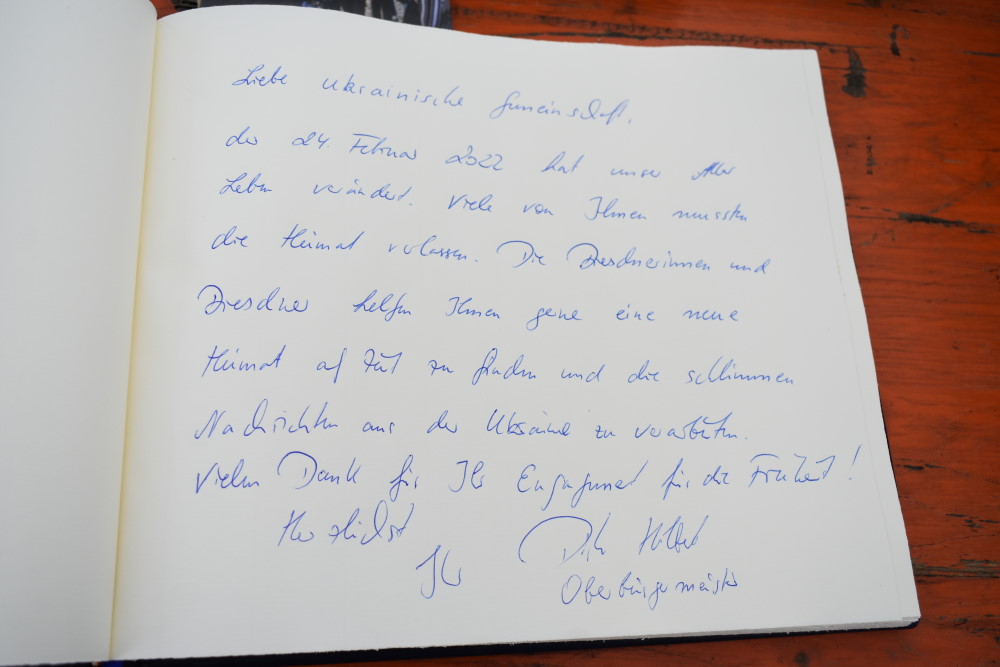 Liebe Ukrainische Gemeinschaft,
der 24. Februar 2022 hat unser Aller
Leben verändert. Viele von Ihnen mussten
die Heimat verlassen. Die Dresdnerinnen und
Dresdner helfen Ihnen gerne eine neue
Heimat auf Zeit zu finden und die schlimmen
Nachrichten aus der Ukraine zu verarbeiten.
Vielen Dank für Ihr Engagement für die Freiheit!
Herzlichst
Ihr Dirk Hilbert
Oberbürgermeister